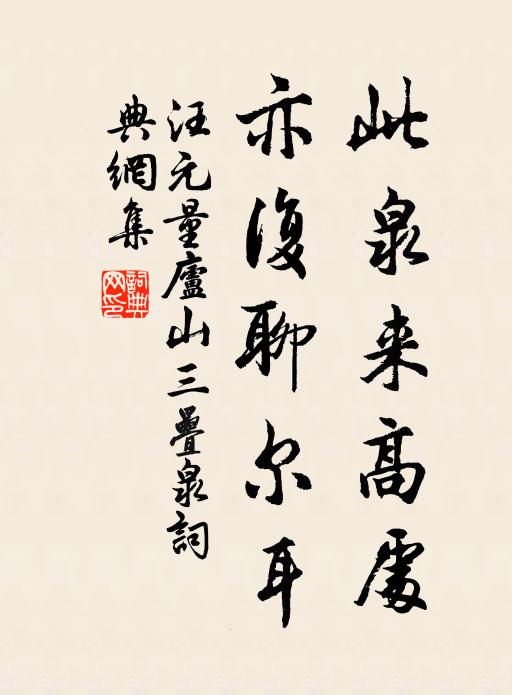 此泉来高處
亦復聊尔耳
汪元量廬山三疊泉詞
典網集
詞典网印